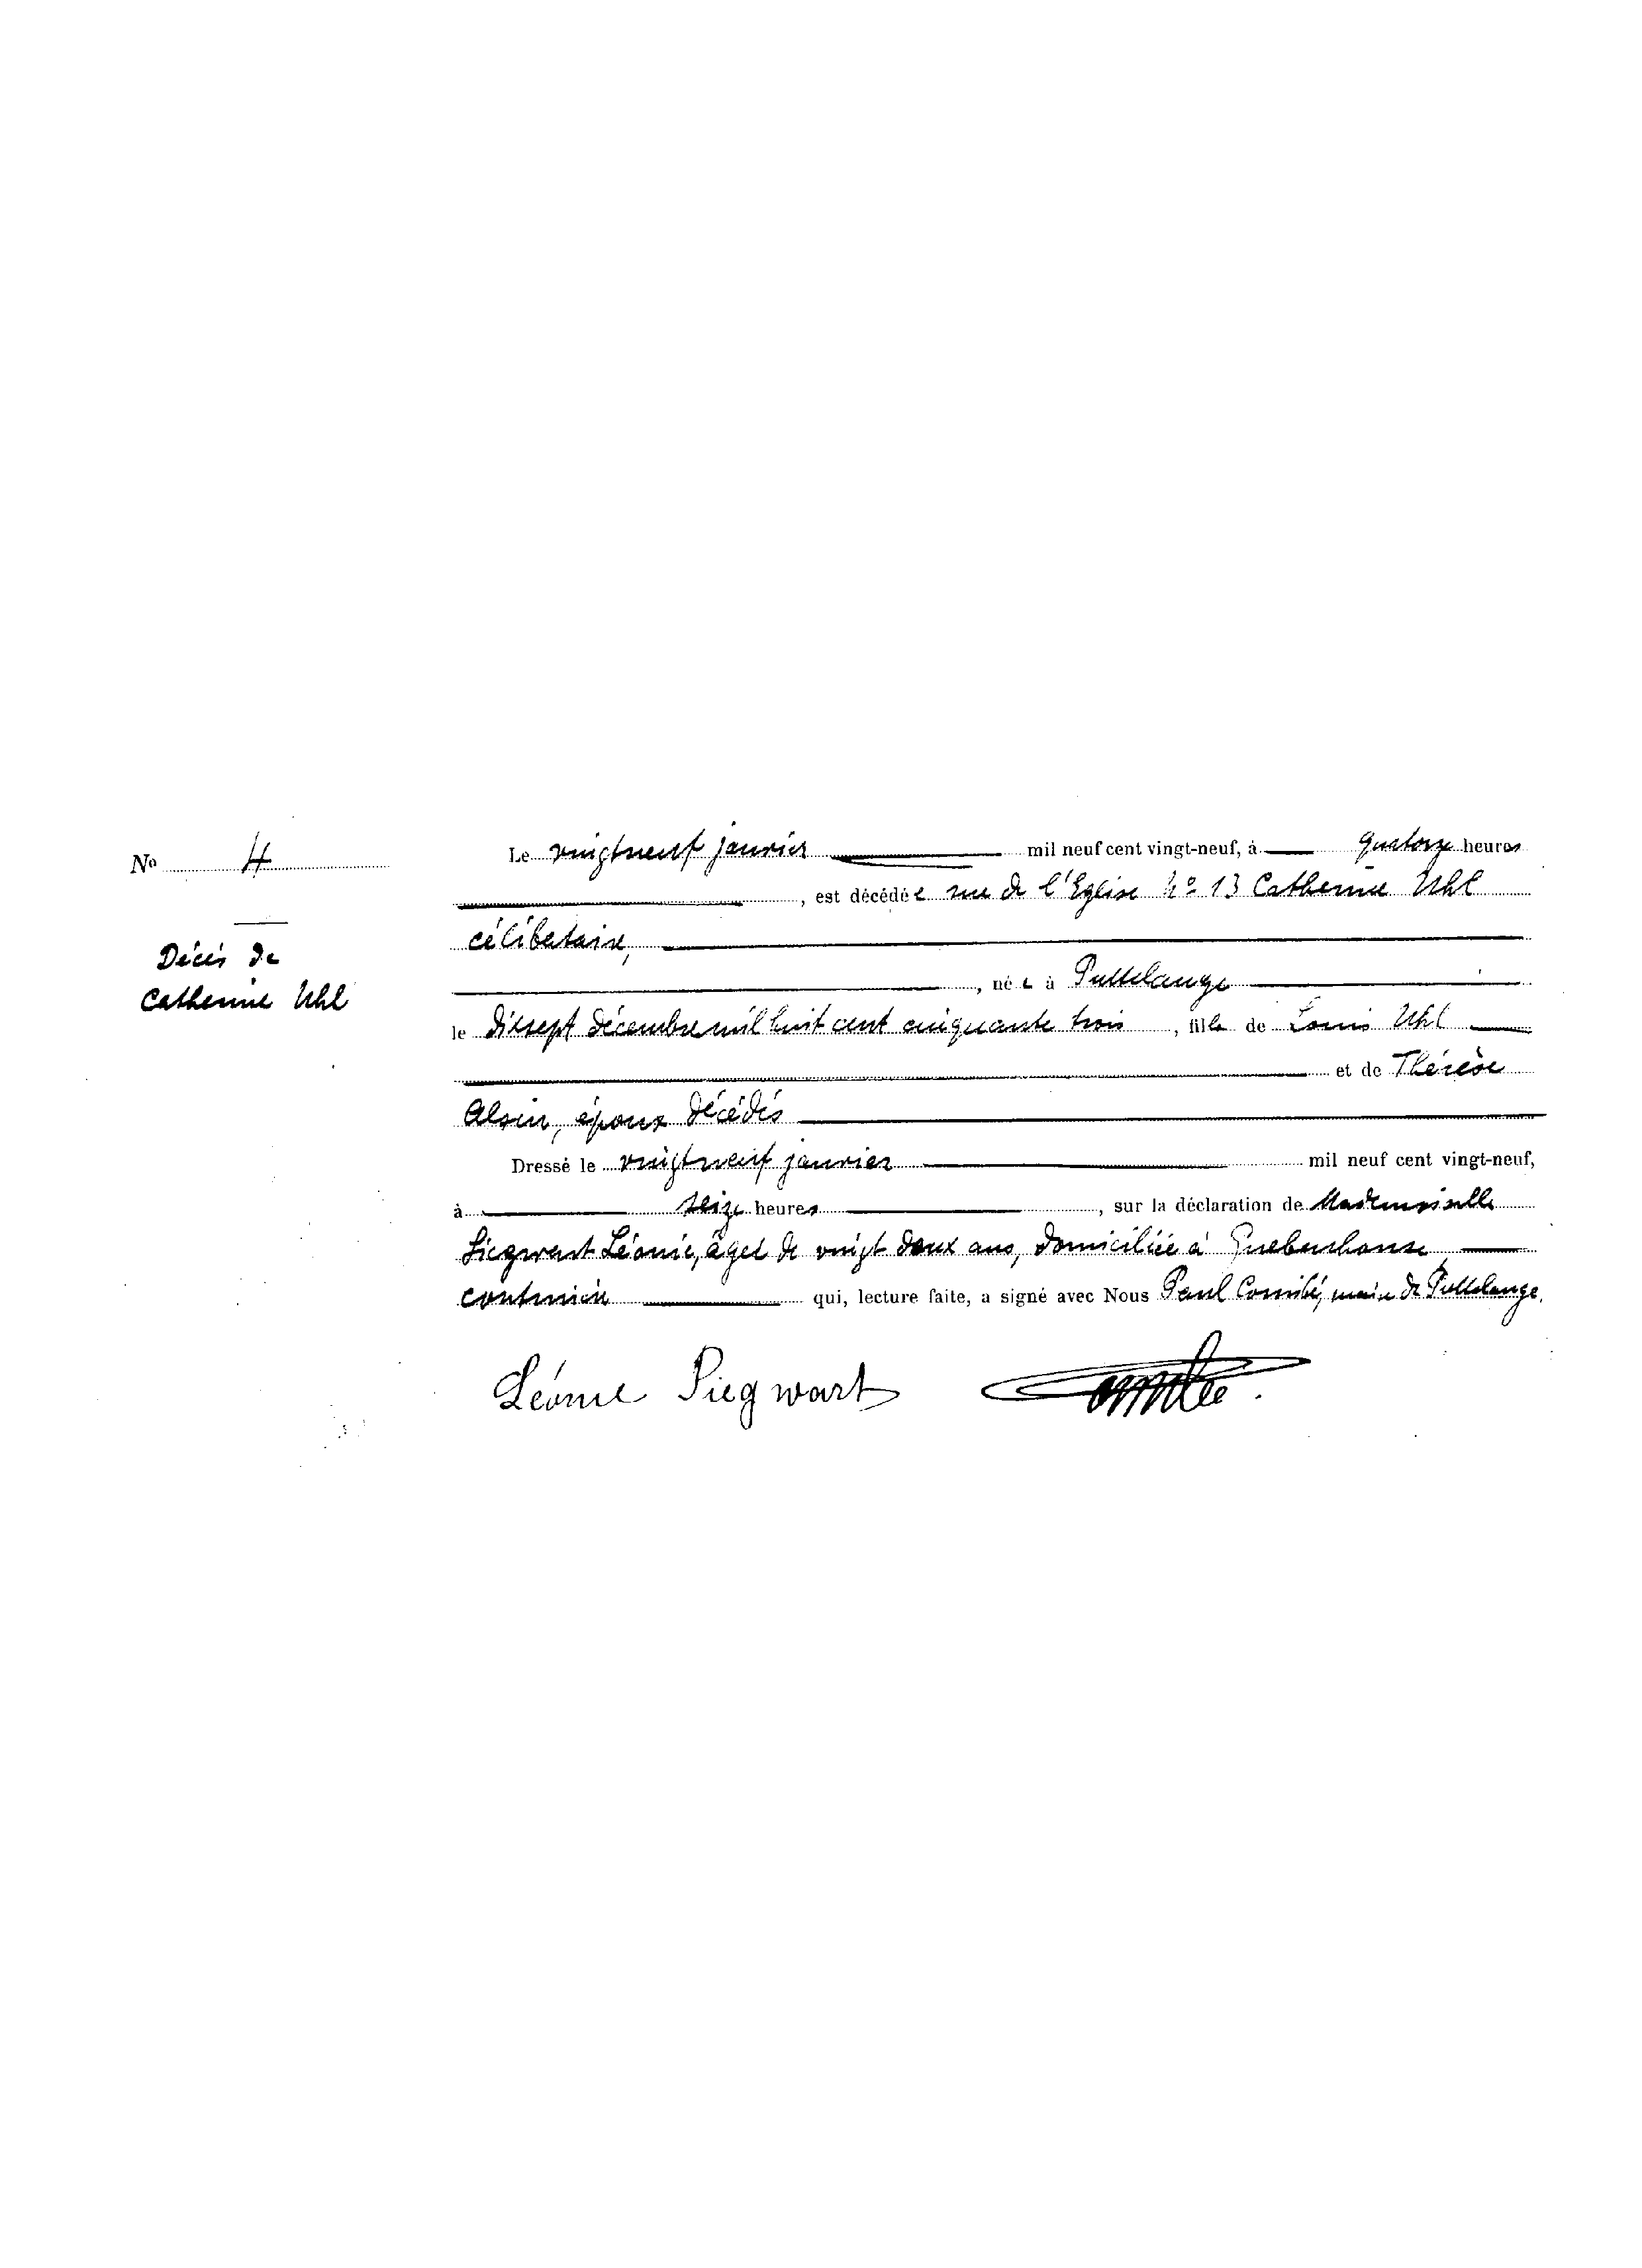 Nº 4
Décès de
Catherine Uhl
Le vingtneuf janvier mil neuf cent vingt-neuf, à quatorze heures
, est décédée rue de l'Eglise nº 13 Catherine Uhl
célibataire,
, née à Puttelange
le dixsept décembre mil huit cent cinquante trois, fille de Louis Uhl
et de Thérèse
Alsin, époux décédés
Dressé le vingtneuf janvier mil neuf cent vingt-neuf,
à seize heures, sur la déclaration de Mademoiselle
Siegwart Léonie, âgée de vingt deux ans, domiciliée à Guebenhouse
couturière qui, lecture faite, a signé avec Nous Paul Comité, maire de Puttelange.
Léonie Siegwart